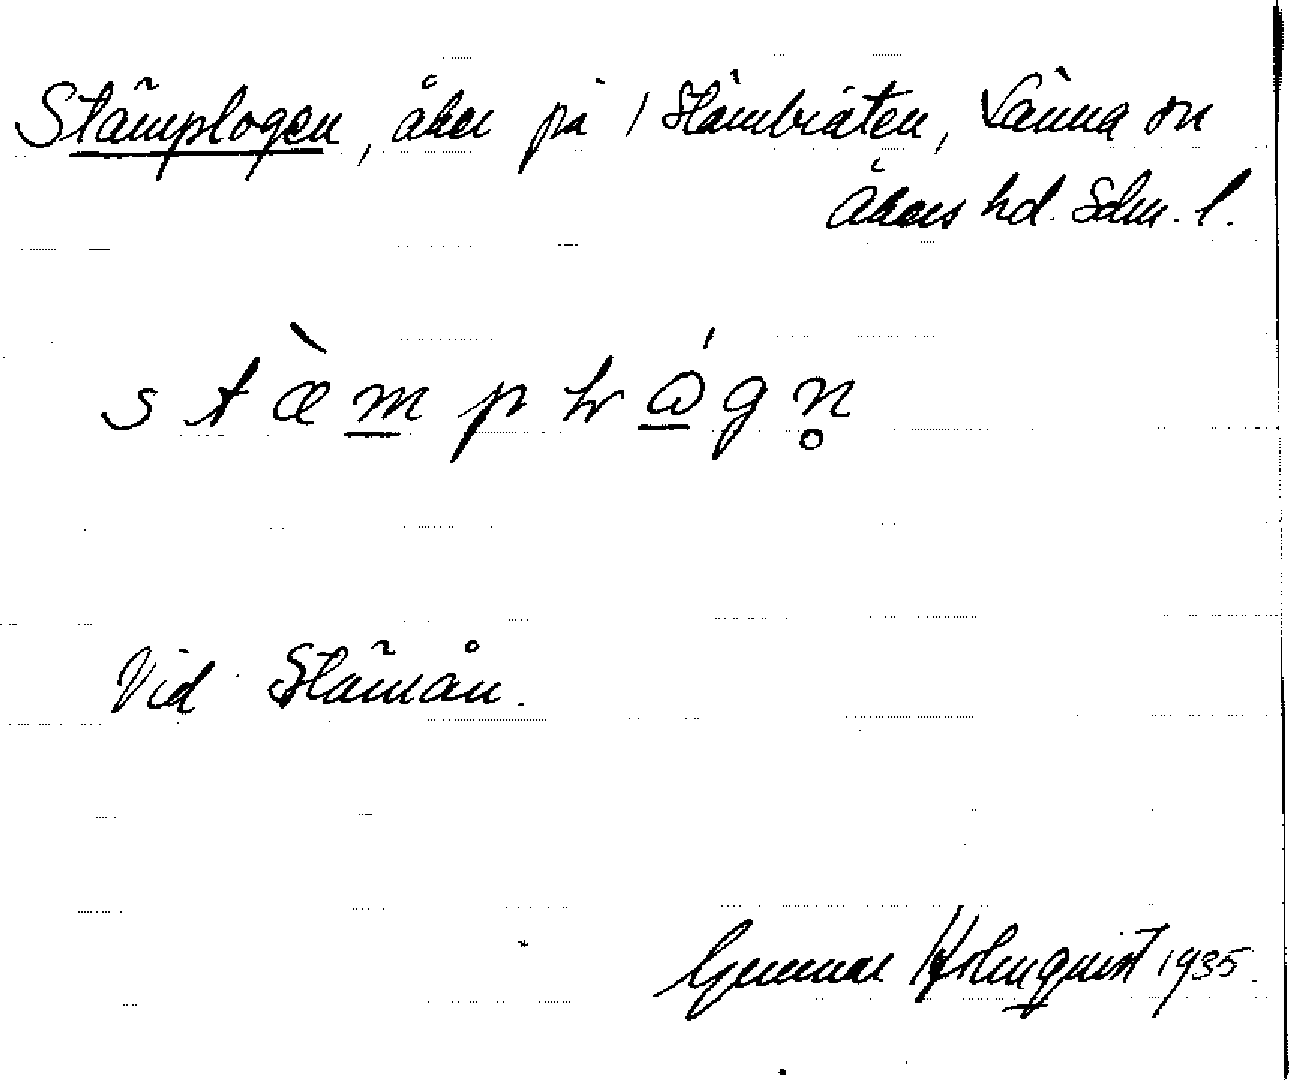 Stämplogen, åker på / Stämbråten, Länna sn
Åkers hd. Sdm. l.
s t æ̀ m p l ώ g n̥
Vid Stämån.
Gunnar Holmquist 1935.